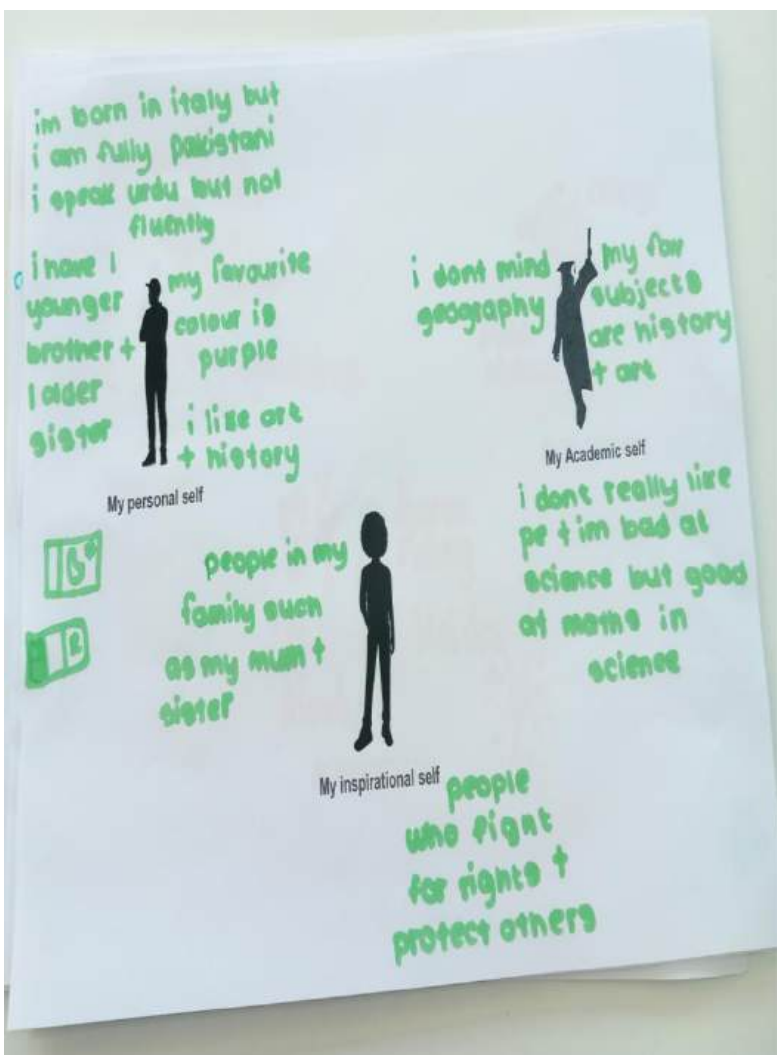 im born in italy but
i am fully pakistani
i speak urdu but not
fluently
i have 1
younger
brother +
1 older
sister
my favourite
colour is
purple
i like art
+ history
My personal self
i dont mind
geography
my fav
subjects
are history
+ art
My Academic self
i dont really like
pe + im bad at
science but good
at maths in
science
people in my
family such
as my mum +
sister
My inspirational self
people
who fight
for rights +
protect others